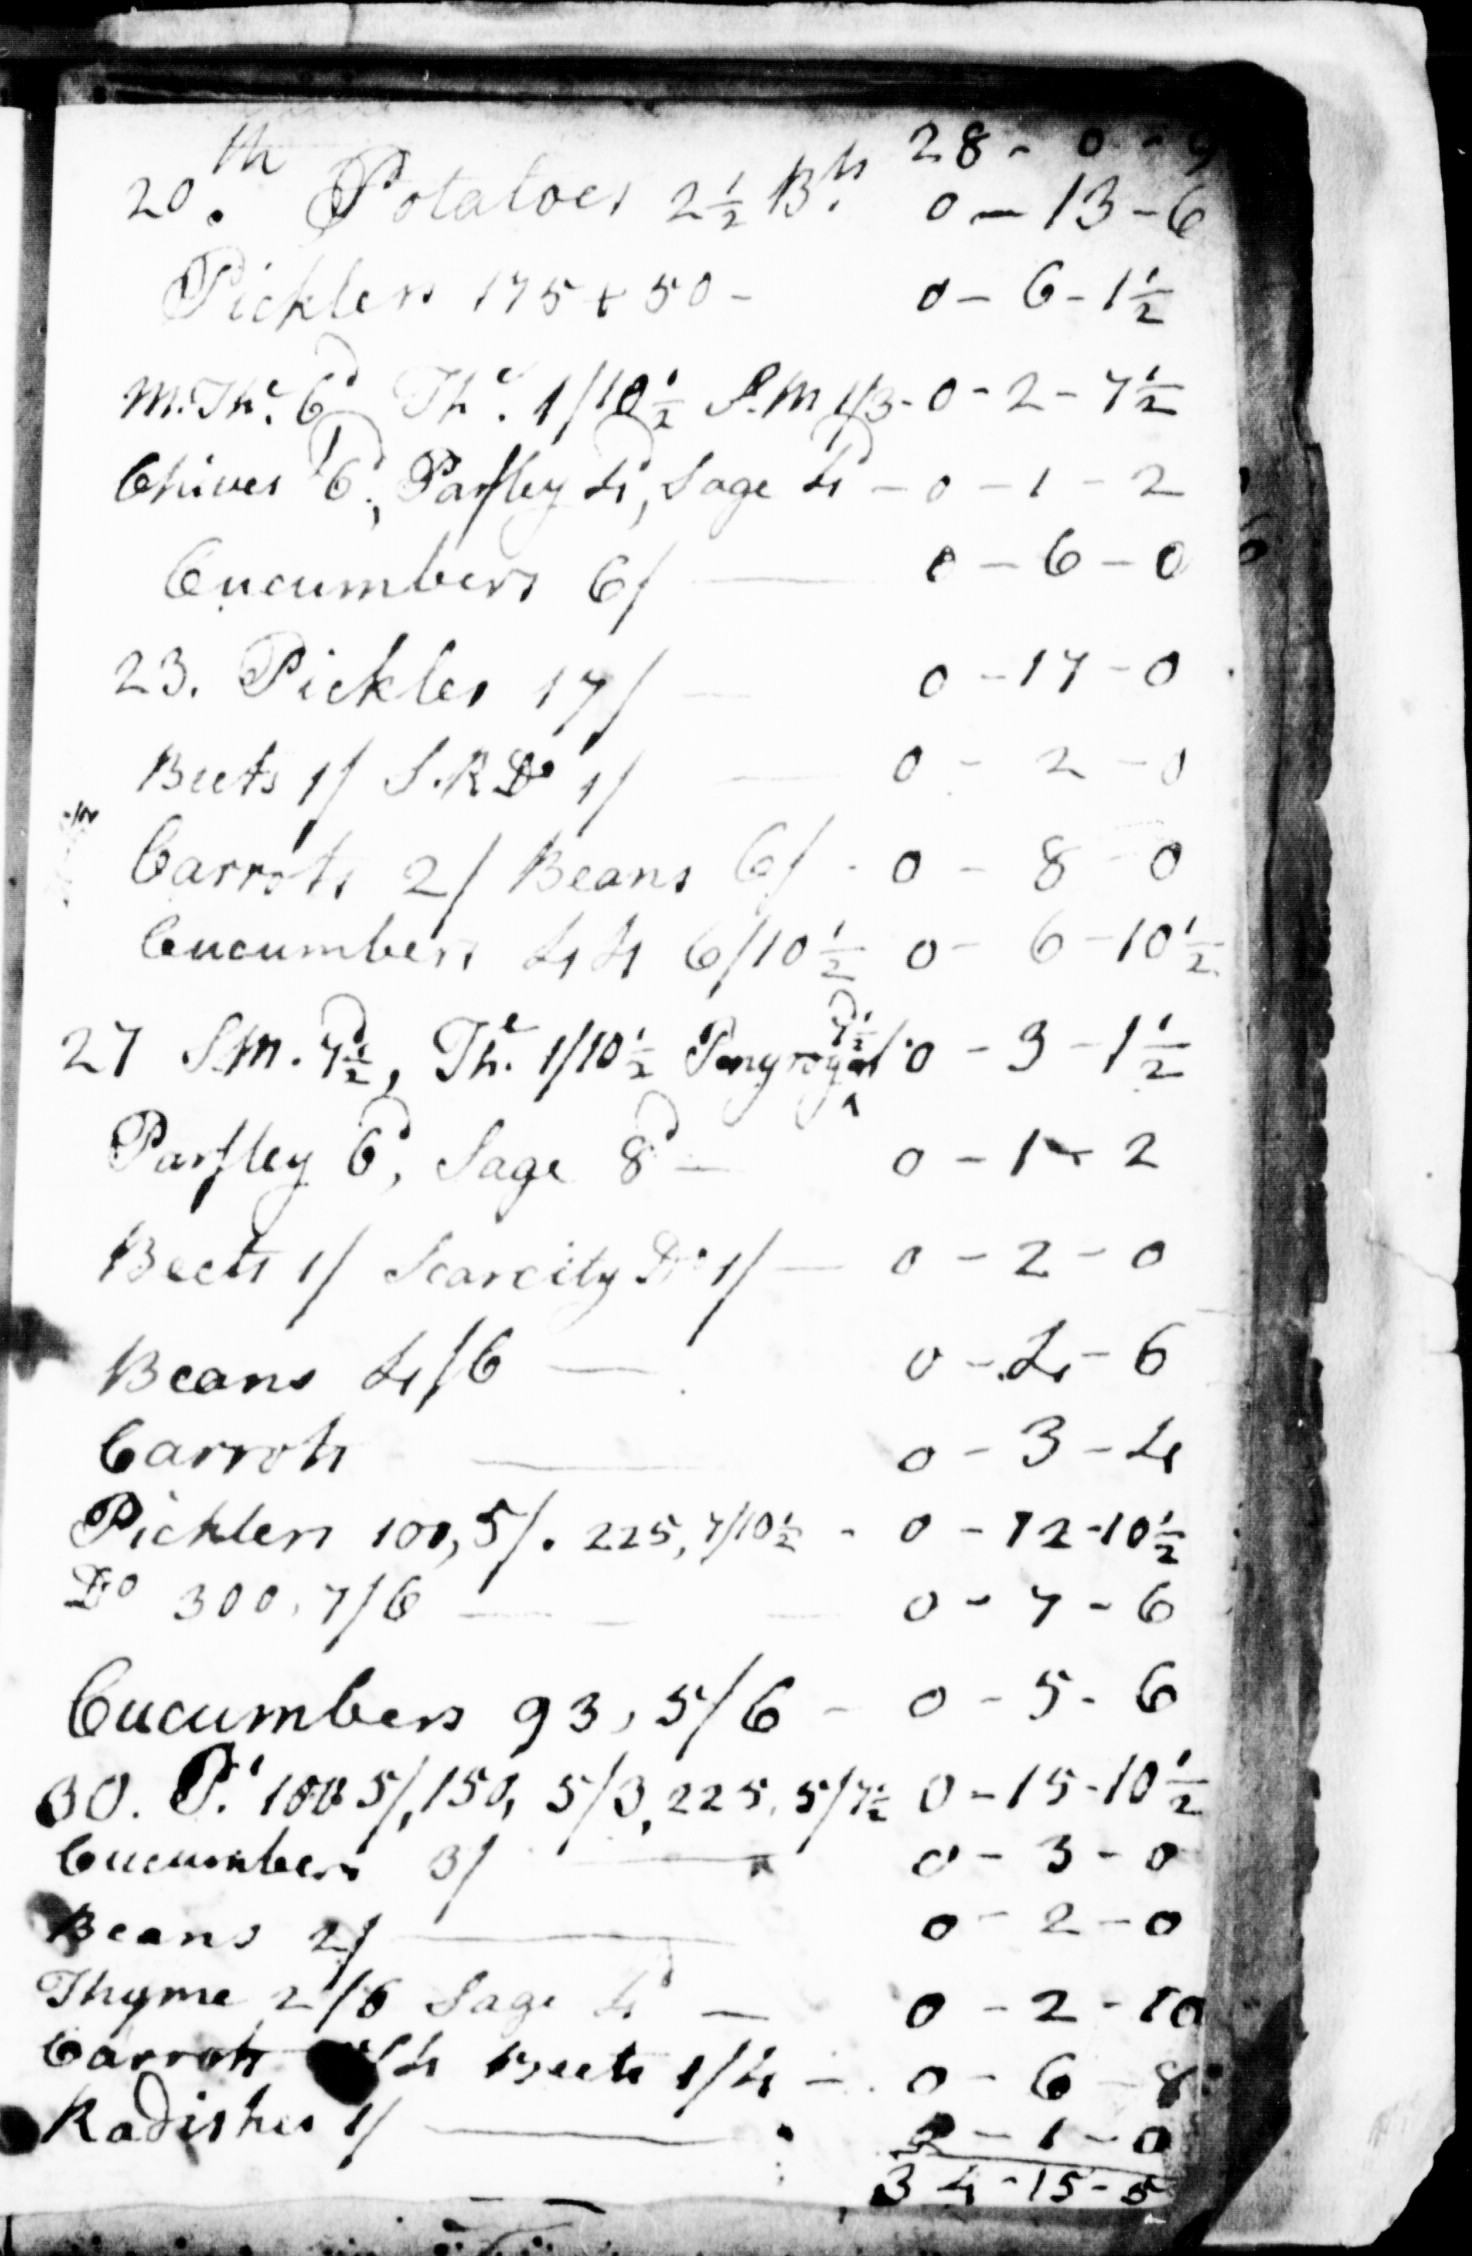 28 - 0 - 9
20.th Potatoes 2½ Bh. 0 - 13 - 6
Picklers 175 + 50 - 0 - 6 - 1½
M.The. 6d, The. 1/10½ S.M 1/3 - 0 - 2 - 7½
Chives 6d, Parsley 4d, Sage 4d - 0 - 1 - 2
Cucumbers 6/ — 0 - 6 - 0
23. Pickles 17/ — 0 - 17 - 0
Beets 1/ S.R Do 1/ — 0 - 2 - 0
Carrots 2/ Beans 6/ - 0 - 8 - 0
Cucumbers 44 6/10½ 0 - 6 - 10½
27 S.M. 7½d, The. 1/10½ Penyroyal 7½d 0 - 3 - 1½
Parsley 6d, Sage 8d — 0 - 1 - 2
Beets 1/ Scarcity Do 1/ — 0 - 2 - 0
Beans 4/6 — 0 - 4 - 6
Carrots — 0 - 3 - 4
Picklers 100, 5/. 225, 7/10½ - 0 - 12 - 10½
Do 300, 7/6 — 0 - 7 - 6
Cucumbers 93, 5/6 - 0 - 5 - 6
30. P. 100 5/, 150, 5/3, 225, 5/7½ 0 - 15 - 10½
Cucumbers 3/ — 0 - 3 - 0
Beans 2/ — 0 - 2 - 0
Thyme 2/6 Sage 4d — 0 - 2 - 10
Carrots /4 Beets 1/4 - 0 - 6 - 8
Radishes 1/ — 0 - 1 - 0
34 - 15 - 5